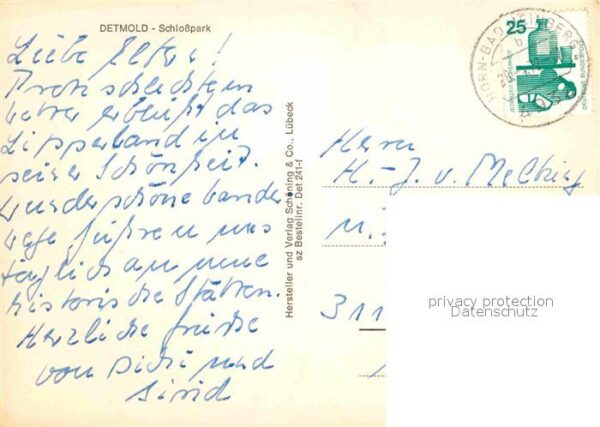 DETMOLD - Schloßpark
Liebe Eltern!
Trotz schlechtem
Wetter erblüht das
Lipperland in
seiner Schönheit.
wunderschöne Wander
wege führen uns
täglich an neue
historische Stätten.
Herzliche Grüße
von Didi und
Sirid
Hersteller und Verlag Schöning & Co., Lübeck
sz Bestellnr. Det 241-f
HORN-BAD MEINBERG
b
25
Herrn
H.-J. v. Melking
311
privacy protection
Datenschutz